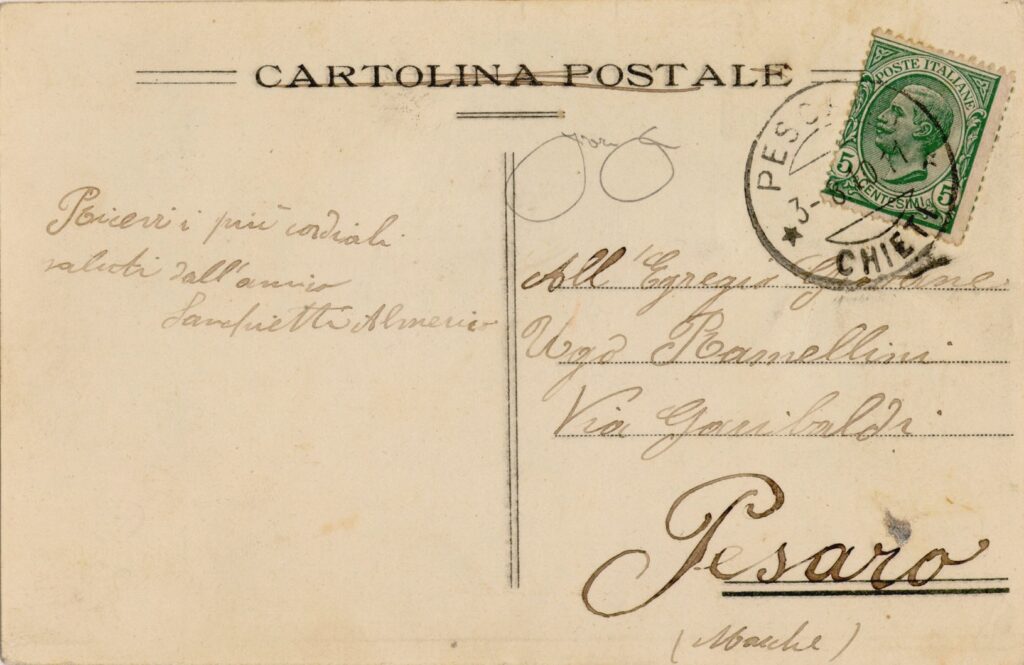 CARTOLINA POSTALE
POSTE ITALIANE
5 CENTESIMI 5
PESCA
3-
CHIETI
Ricevi i più cordiali
saluti dall'amico
Almerico
All'Egregio Giovane
Ugo Ramellini
Via Garibaldi
Pesaro
(Marche)